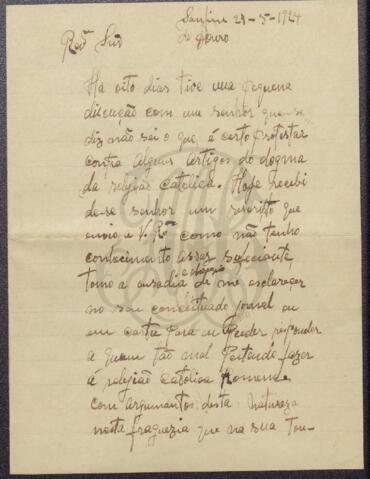 Sanfins 29-5-1924
do Douro
Revº Snr
Ha oito dias tive uma pequena
discução com um senhor que se
diz não sei o que, é certo protestar
contra alguns artigos do dogma
da religião catolica. Hoje recebi
de-se senhor um escripto que
envio a V. Rª como não tenho
conhecimento assas suficiente,
tomo a ousadia de me esclarecer
no seu conceituado jornal ou
em carta para eu poder responder
a quem tão mal pertende fazer
á religião catolica Romana
com argumentos desta natureza
nesta freguezia que na sua tou-